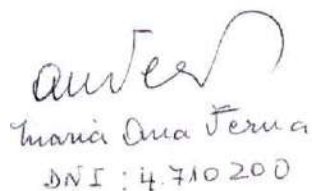 Maria Ana Ferna
DNI : 4.710200